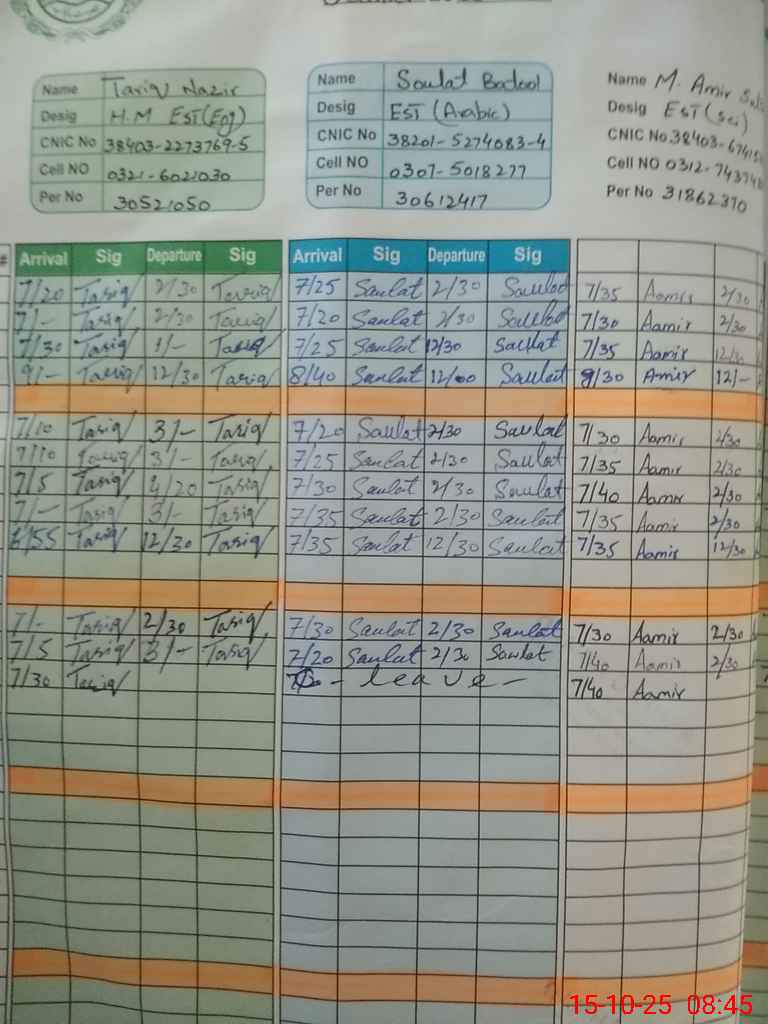 Name Tariq Nazir Name Saulat Batool Name M. Amir
Desig H.M EST(Eng) Desig EST (Arabic) Desig EST(Sci)
CNIC No 38403-2273769-5 CNIC No 38201-5274083-4 CNIC No.38403-
Cell NO 0321-6021030 Cell NO 0307-5018277 Cell NO 0312-
Per No 30521050 Per No 30612417 Per No 31862370
# Arrival Sig Departure Sig Arrival Sig Departure Sig
7/20 Tariq 2/30 Tariq 7/25 Saulat 2/30 Saulat 7/35 Aamir 2/30
7/- Tariq 2/30 Tariq 7/20 Saulat 2/30 Saulat 7/30 Aamir 2/30
7/30 Tariq Tariq 7/25 Saulat 12/30 Saulat 7/35 Aamir 12/30
9/- Tariq 12/30 Tariq 8/40 Saulat 12/00 Saulat 9/30 Amir 12/-
7/10 Tariq 3/- Tariq 7/20 Saulat 2/30 Saulat 7/30 Aamir 2/30
7/10 Tariq 3/- Tariq 7/25 Saulat 2/30 Saulat 7/35 Aamir 2/30
7/5 Tariq Tariq 7/30 Saulat 2/30 Saulat 7/40 Aamir 2/30
7/- Tariq 3/- Tariq 7/35 Saulat 2/30 Saulat 7/35 Aamir 2/30
Tariq 12/30 Tariq 7/35 Saulat 12/30 Saulat 7/35 Aamir 12/30
7/- Tariq 2/30 Tariq 7/30 Saulat 2/30 Saulat 7/30 Aamir 2/30
7/5 Tariq 3/- Tariq 7/20 Saulat 2/30 Saulat 7/40 Aamir 2/30
7/30 Tariq - leave - 7/40 Aamir
15-10-25 08:45